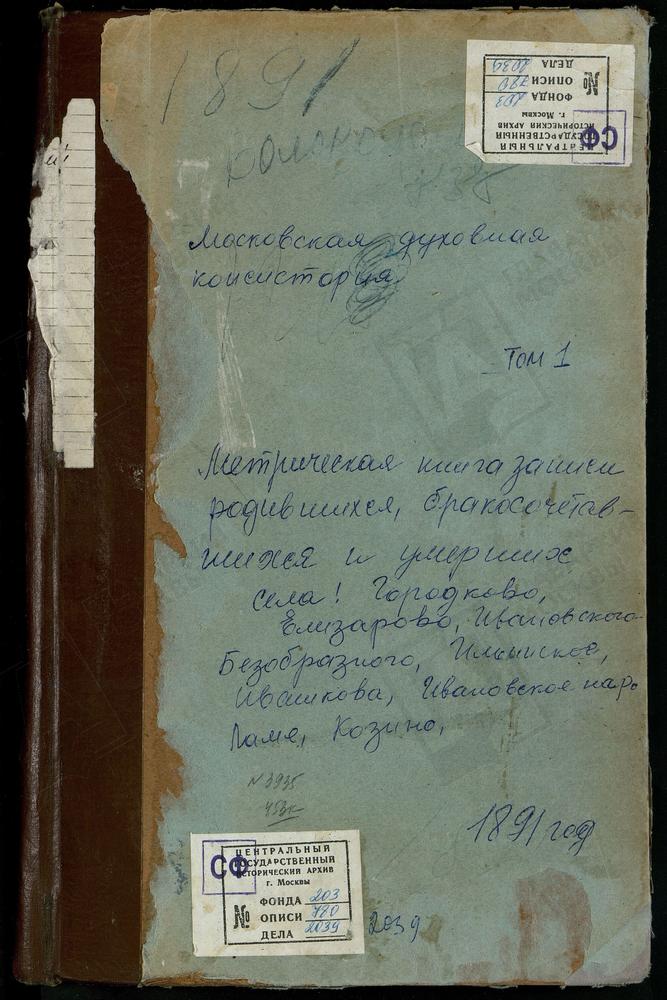 1891
СФ
ЦЕНТРАЛЬНЫЙ
ГОСУДАРСТВЕННЫЙ
ИСТОРИЧЕСКИЙ АРХИВ
г. Москвы
ФОНДА 203
№ ОПИСИ 780
ДЕЛА 2039
Московская духовная
консистория
Том 1
Метрическая книга записи
родившихся, бракосочетав-
шихся и умерших
села! Городково,
Елизарово, Ивановского
Безобразного, Ильинское,
Ивашкова, Ивановское на р.
Ламе, Козино,
N 3935
1891 год
СФ
ЦЕНТРАЛЬНЫЙ
ГОСУДАРСТВЕННЫЙ
ИСТОРИЧЕСКИЙ АРХИВ
г. Москвы
ФОНДА 203
№ ОПИСИ 780
ДЕЛА 2039
2039